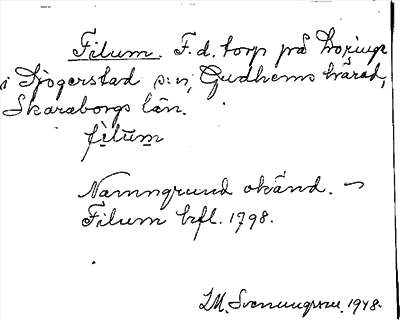 Filum. F. d. torp på
i Djogerstad s:n, Gudhems härad,
Skaraborgs län.
filum
Namngrund okänd. –
Filum befl. 1798.
I.M. Svenungsson. 1948.